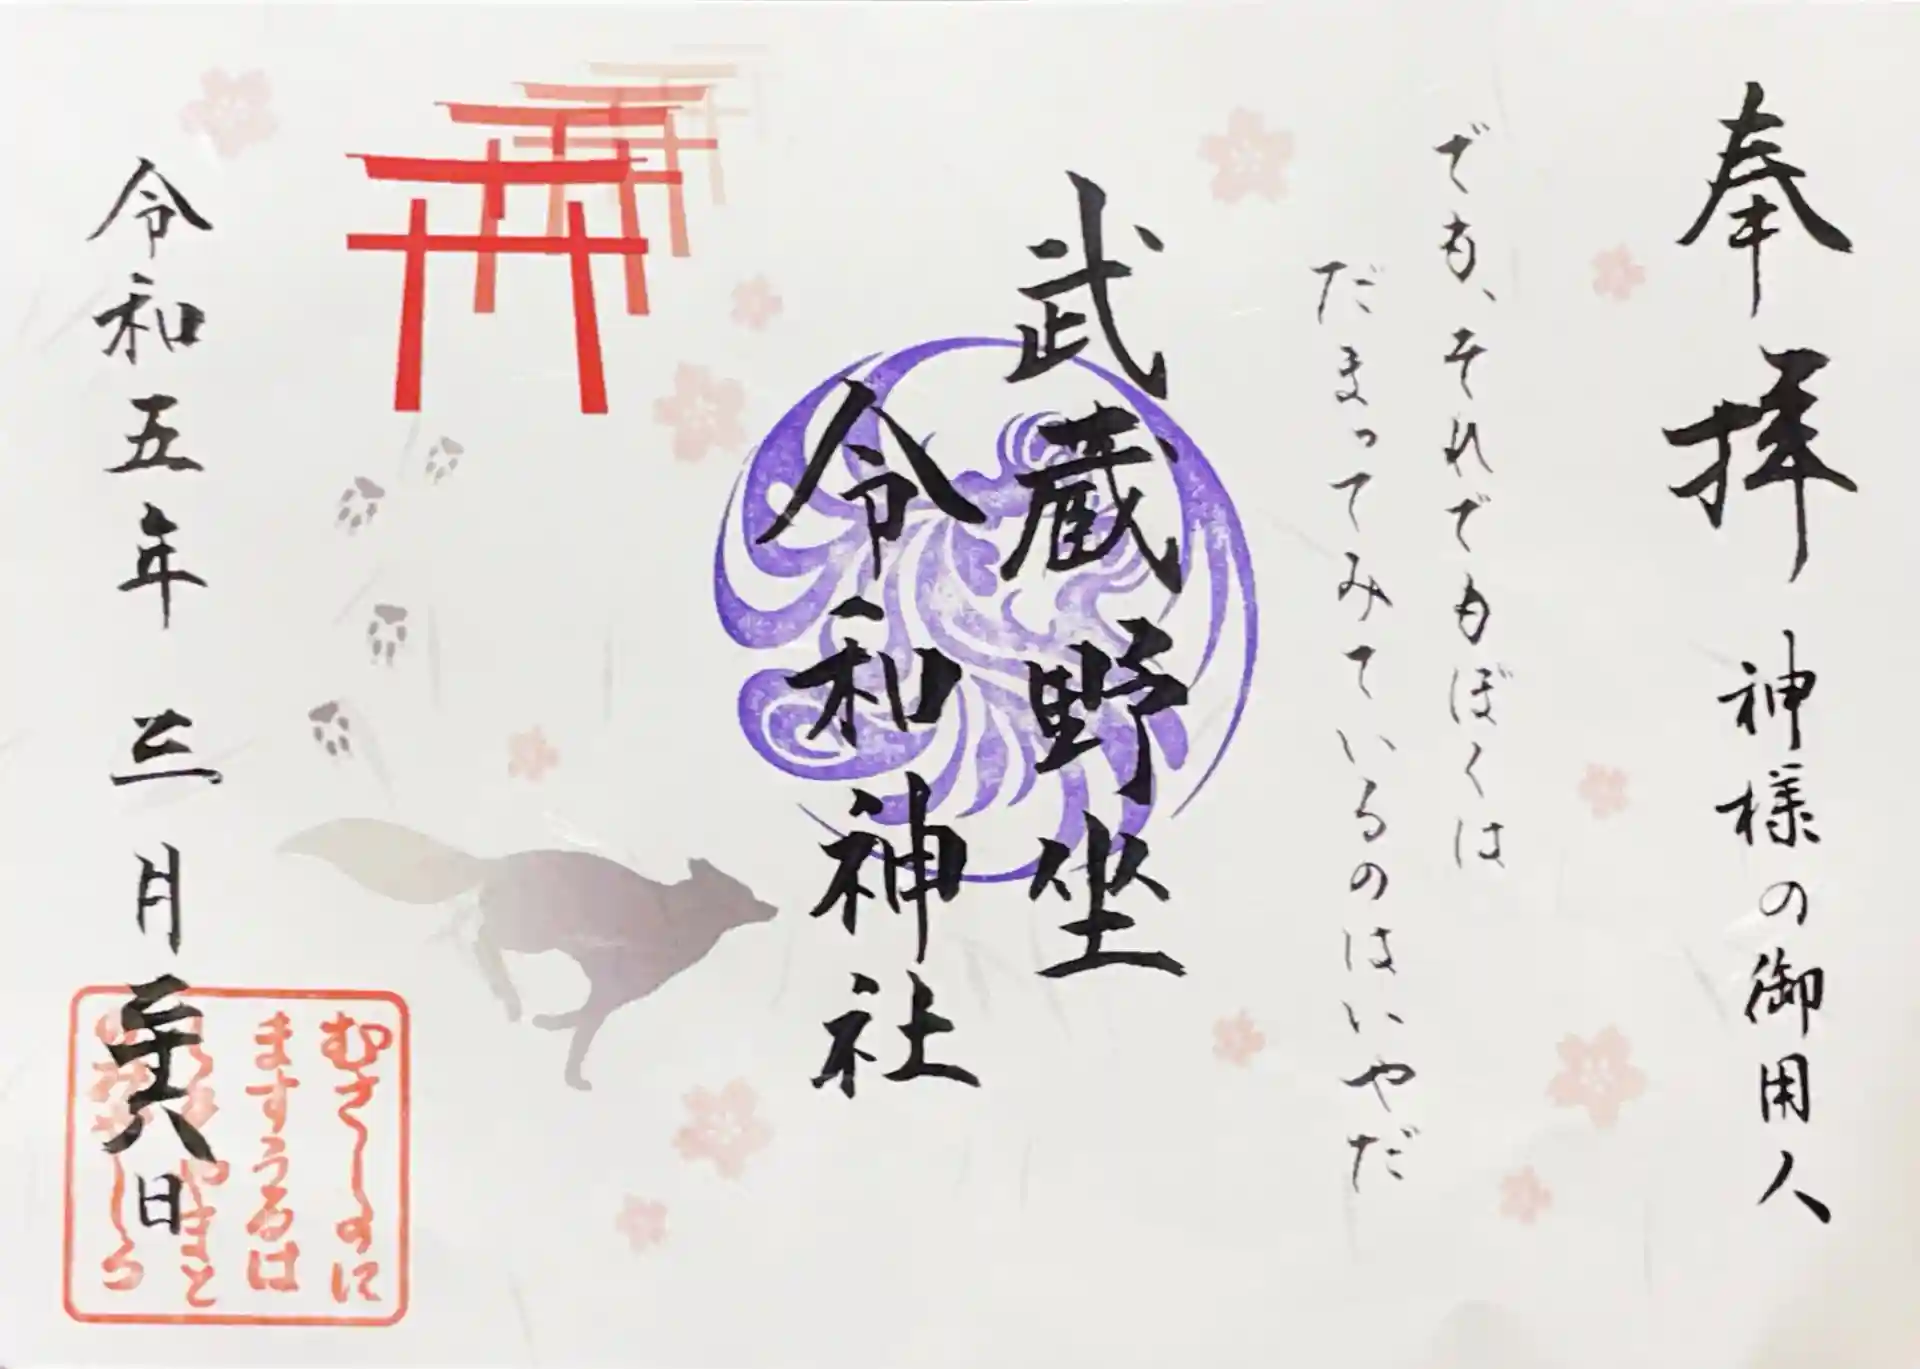 奉拝
神様の御用人
でも、それでもぼくは
だまってみているのはいやだ
武蔵野坐
令和神社
令和五年三月二十八日
むさしのに
ますうるは
しきやまと
のみやしろ